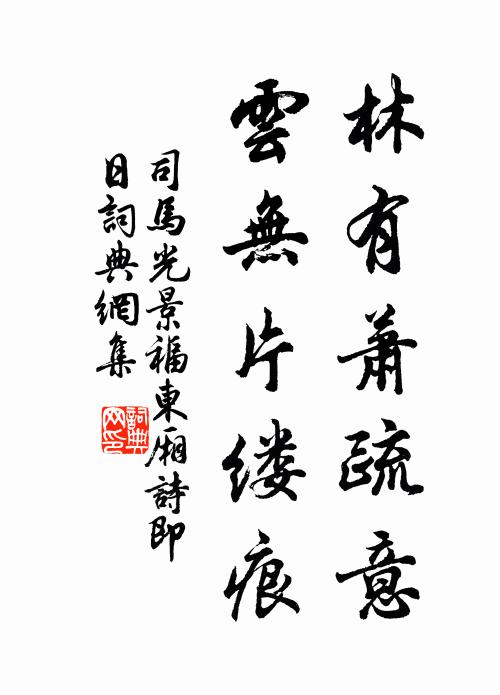 林有蕭疏意
雲無片缕痕
司馬光景福東厢詩即
日詞典網集
詞典
网印